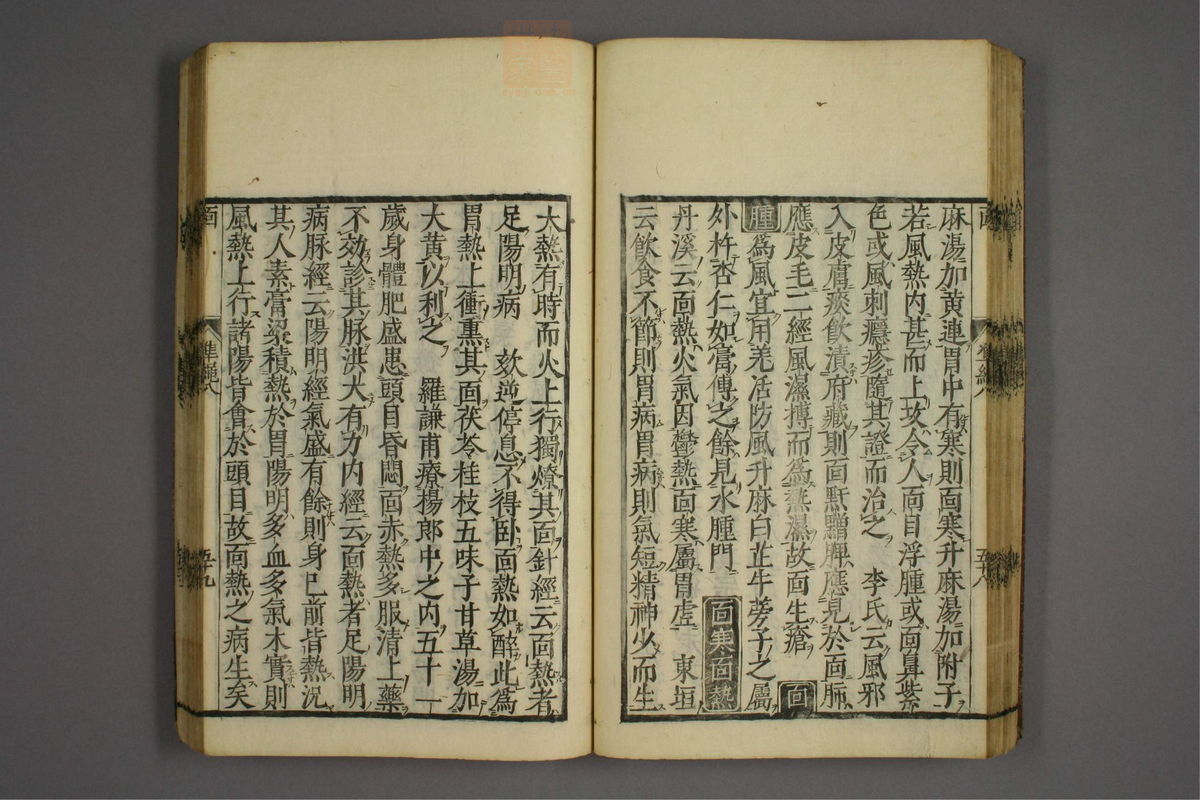 麻湯加黃連胃中有寒則面寒升麻湯加附子
若風熱內甚而上攻令人面目浮腫或面鼻紫
色或風刺癮疹隨其證而治之　李氏云風邪
入皮膚痰飲漬府藏則面䵟䵳脾應見於面肺
應皮毛二經風濕搏而為熱濕故面生瘡　面
腫為風宜用羌活防風升麻白芷牛蒡子之屬
外杵杏仁如膏傅之餘見水腫門　面寒面熱
丹溪云面熱火氣因鬱熱面寒屬胃虛　東垣
云飲食不節則胃病胃病則氣短精神少而生
大熱有時而火上行獨燎其面針經云面熱者
足陽明病　欬逆倚息不得臥面熱如醉此為
胃熱上衝熏其面茯苓桂枝五味子甘草湯加
大黃以利之　羅謙甫療楊郎中之內五十一
歲身體肥盛患頭目昏悶面赤熱多服清上藥
不效診其脈洪大有力內經云面熱者足陽明
病脈經云陽明經氣盛有餘則身已前皆熱況
其人素膏粱積熱於胃陽明多血多氣本實則
風熱上行諸陽皆會於頭目故面熱之病生矣
面
準繩八
五十九